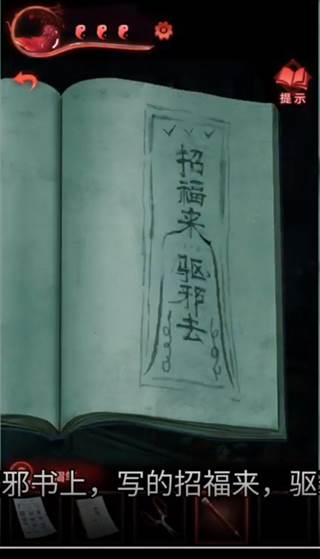 提示
招福来
驱邪去
邪书上，写的招福来，驱